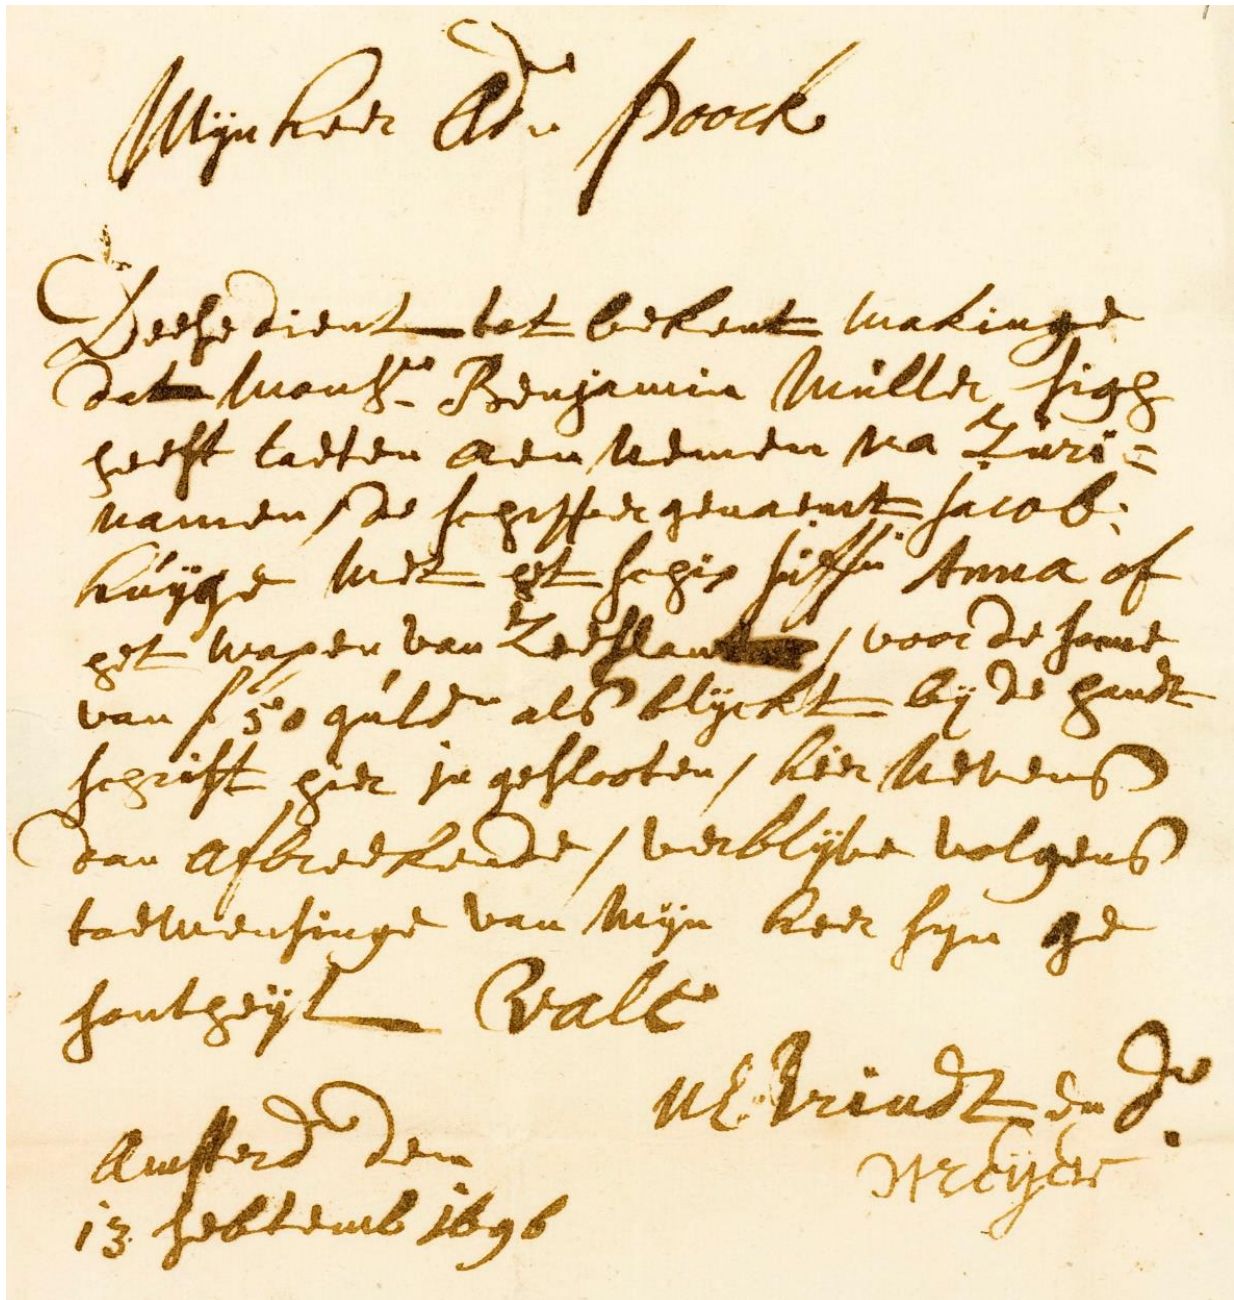 Mijn heer Adr Poock
Deese dient tot bekent makinge
dat Monsr Benjamin Müller sigh
heeft laeten aen nemen na Züri=
namen / de schipper genaemt Jacob
kúijge met het schip Anna of
het wapen van Zeeslant / voor de some
van f 50 guldn als blijckt bij de handt
schrift hier in geslooten / hier nevens
dan afbreekende / verblijve volgens
toewensinge van Mijn heer sijn ge
sontheijt Vale
UE Vrindt en Dr
Amsterd den
13 sebtemb 1696